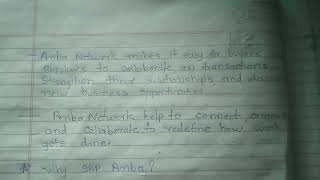 - Ariba Network makes it easy for buyers
suppliers to collaborate on transactions,
strengthen their relationships and
new business opportunities.
- Ariba Network help to connect
and collaborate to redefine how work
gets done.
* Why SAP Ariba?